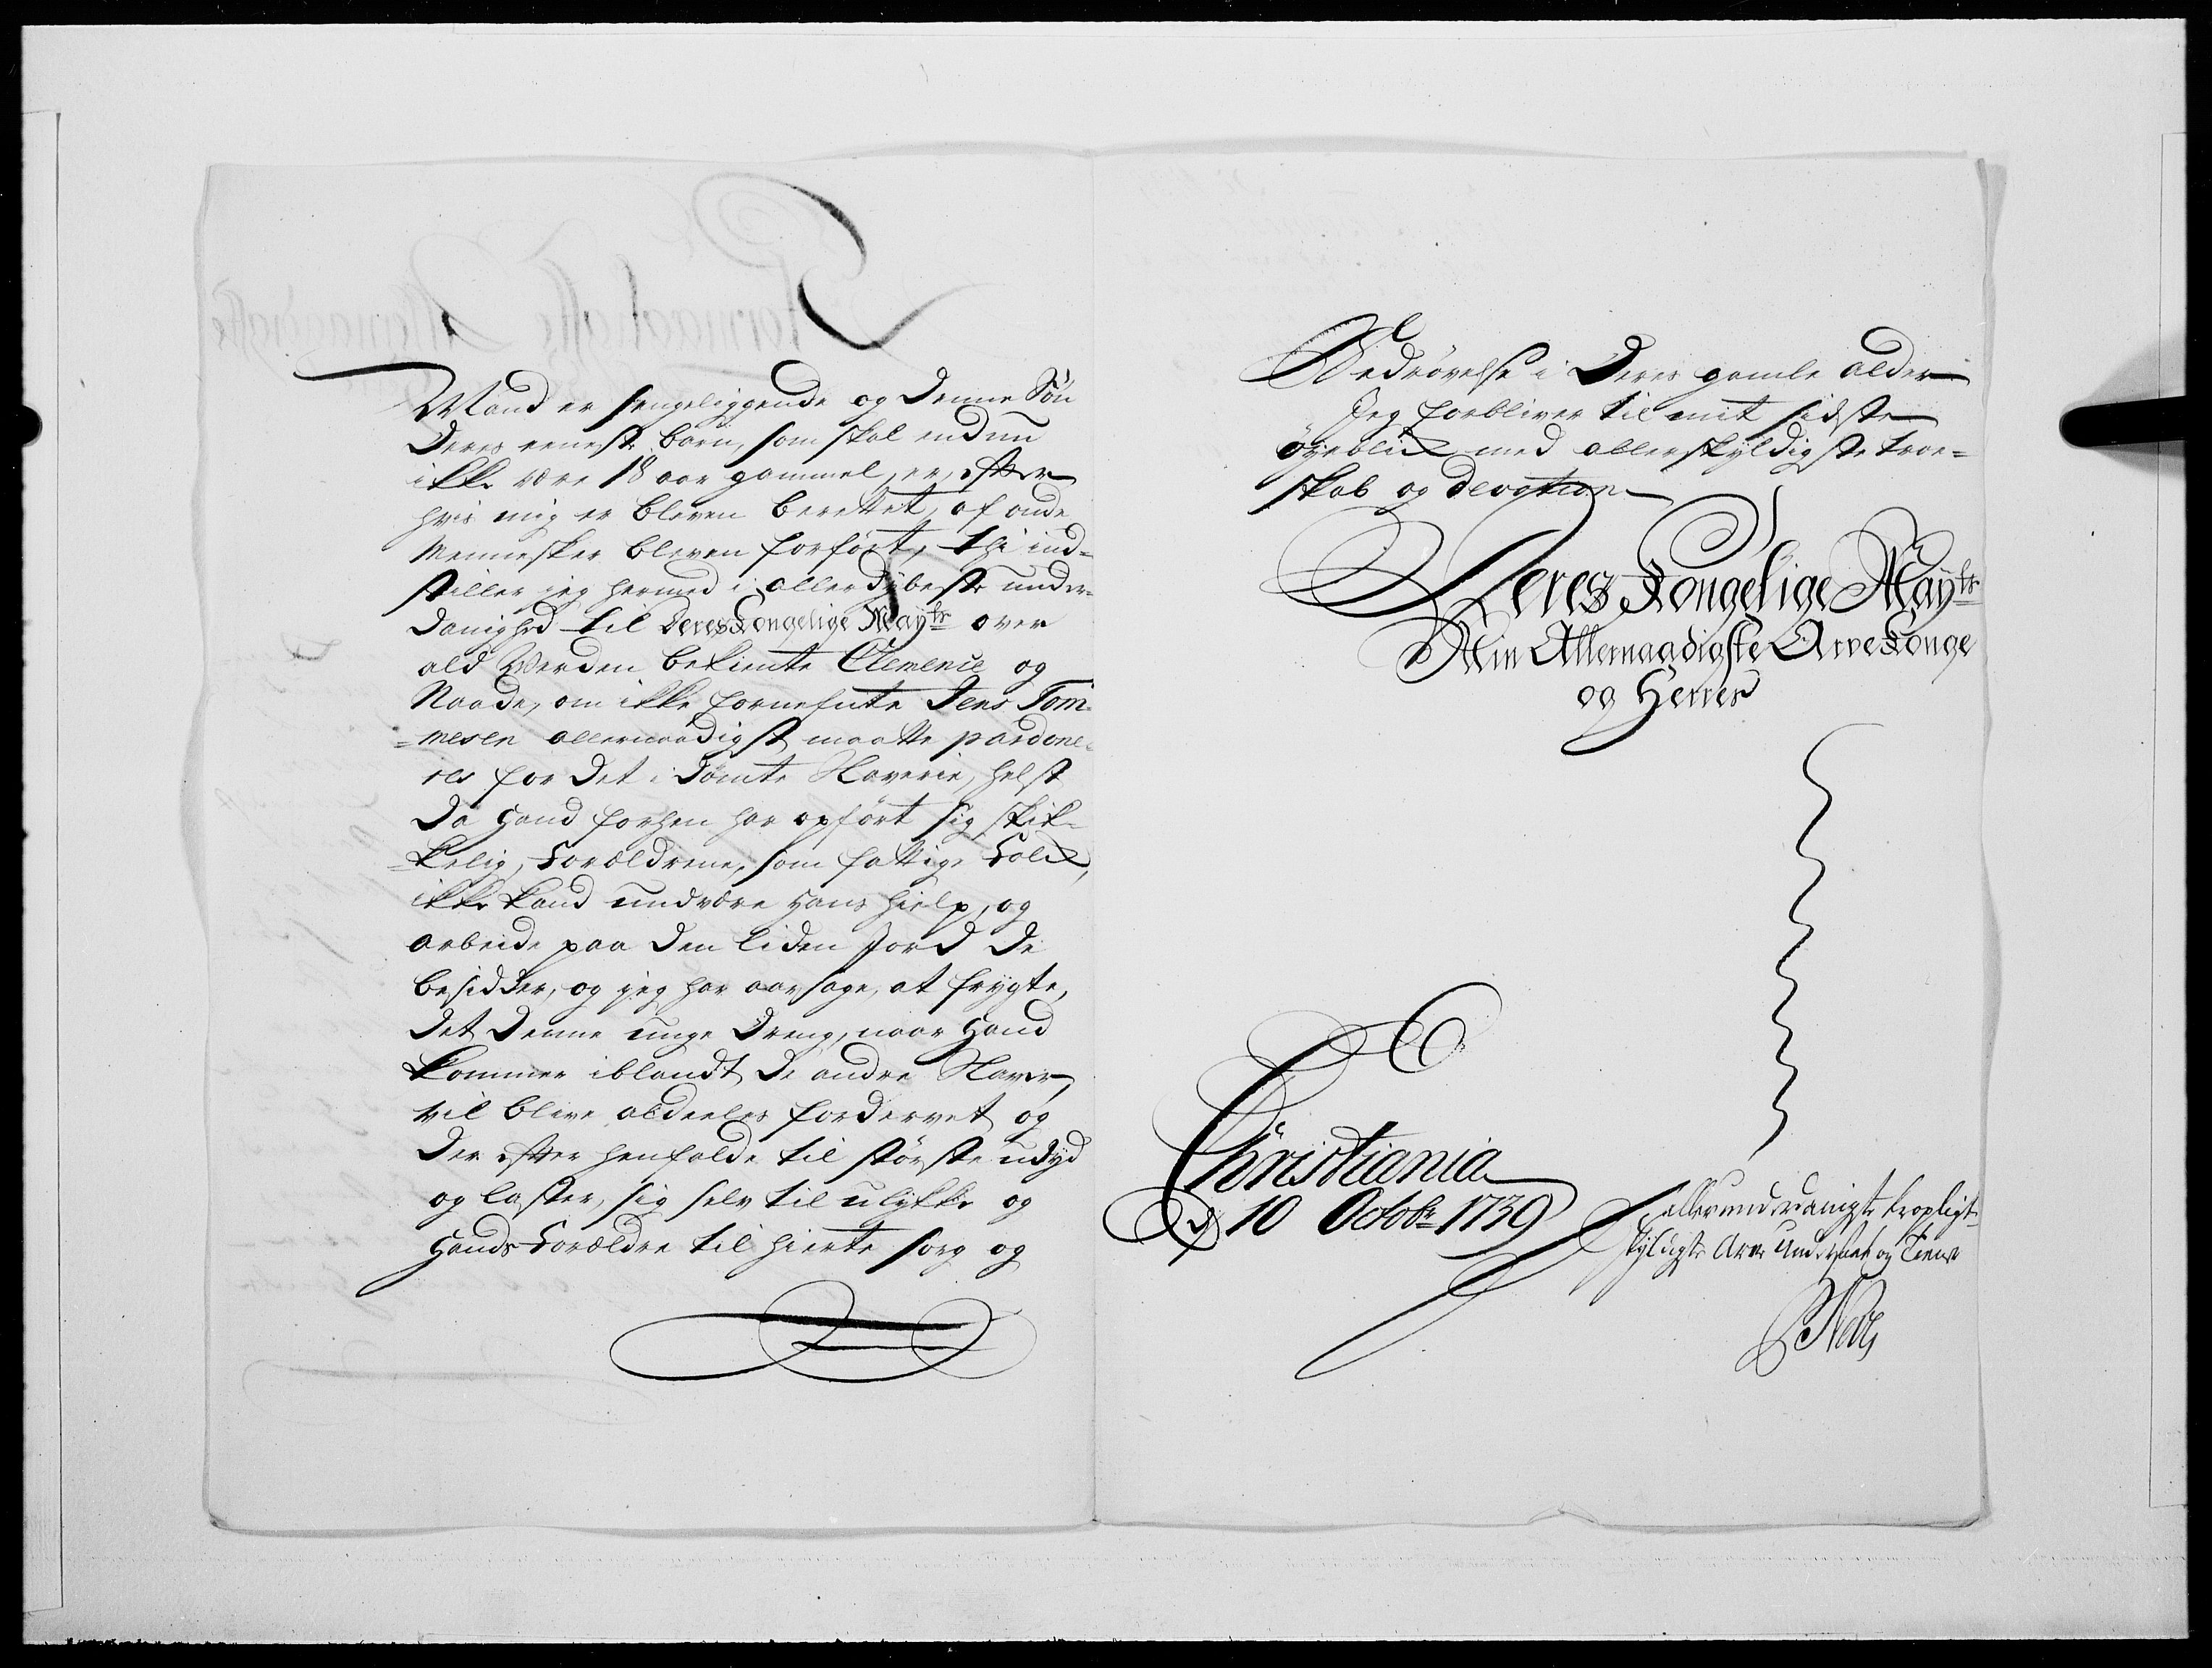 Mand er sengeliggende og denne Søn
deres eeneste barn, som skal endnu
ikke være 18 aar gammel, er, efter
hvis mig er bleven berettet, af onde
Mennesker bleven forført, thi ind-
stiller jeg hermed i allerdybeste under-
danighed til Deres Kongelige Mayts over
ald Verden bekiente Clemence og
Naade, om ikke fornefnte Jens Tom-
=mesen allernaadigst maatte pardone-
res for det i dømte Slaverie, helst
da hand forhen har opført sig skik-
=kelig, Forældrene, som fattige Folck,
ikke kand undvære hans hielp, og
arbeide paa den liden Jord de
besidder, og jeg har aarsage, at frygte,
det denne unge Dreng, naar hand
kommer iblandt de andre Slaver,
vil blive aldeeles fordervet og
der efter henfalde til største udyd
og laster, sig selv til ulykke og
hands Forældre til hierte sorg og
Bedrøvelse i Deres gamle alder
Jeg forbliver til mit sidste
øyeblick med allerskyldigste troe=
skab og devotion
Deres Kongelige Mayts
Min Allernaadigste Arve Konge
og Herres
Christiania
d 10 Octobr 1739
allerunderdanigste troepligt-
skyldigste Arve Undersaat og Tiener